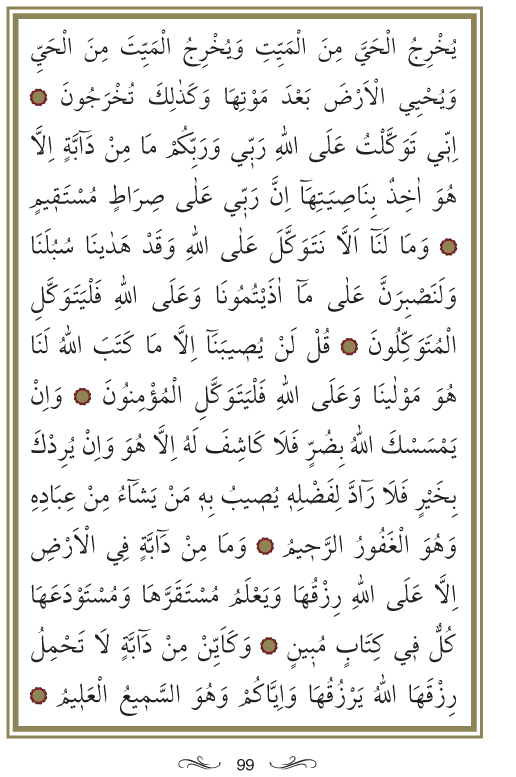 يُخْرِجُ الْحَيَّ مِنَ الْمَيِّتِ وَيُخْرِجُ الْمَيِّتَ مِنَ الْحَيِّ
وَيُحْيِي الْاَرْضَ بَعْدَ مَوْتِهَا وَكَذٰلِكَ تُخْرَجُونَ
اِنّ۪ي تَوَكَّلْتُ عَلَى اللهِ رَبّ۪ي وَرَبِّكُمْ مَا مِنْ دَٓابَّةٍ اِلَّا
هُوَ اٰخِذٌ بِنَاصِيَتِهَٓا اِنَّ رَبّ۪ي عَلٰى صِرَاطٍ مُسْتَق۪يمٍ
وَمَا لَنَٓا اَلَّا نَتَوَكَّلَ عَلَى اللهِ وَقَدْ هَدٰينَا سُبُلَنَا
وَلَنَصْبِرَنَّ عَلٰى مَٓا اٰذَيْتُمُونَا وَعَلَى اللهِ فَلْيَتَوَكَّلِ
الْمُتَوَكِّلُونَ قُلْ لَنْ يُص۪يبَنَٓا اِلَّا مَا كَتَبَ اللهُ لَنَا
هُوَ مَوْلٰينَا وَعَلَى اللهِ فَلْيَتَوَكَّلِ الْمُؤْمِنُونَ وَاِنْ
يَمْسَسْكَ اللهُ بِضُرٍّ فَلَا كَاشِفَ لَهُ اِلَّا هُوَ وَاِنْ يُرِدْكَ
بِخَيْرٍ فَلَا رَٓادَّ لِفَضْلِه۪ يُص۪يبُ بِه۪ مَنْ يَشَٓاءُ مِنْ عِبَادِهِ
وَهُوَ الْغَفُورُ الرَّح۪يمُ وَمَا مِنْ دَٓابَّةٍ فِي الْاَرْضِ
اِلَّا عَلَى اللهِ رِزْقُهَا وَيَعْلَمُ مُسْتَقَرَّهَا وَمُسْتَوْدَعَهَا
كُلٌّ ف۪ي كِتَابٍ مُب۪ينٍ وَكَاَيِّنْ مِنْ دَٓابَّةٍ لَا تَحْمِلُ
رِزْقَهَا اللهُ يَرْزُقُهَا وَاِيَّاكُمْ وَهُوَ السَّم۪يعُ الْعَل۪يمُ
99